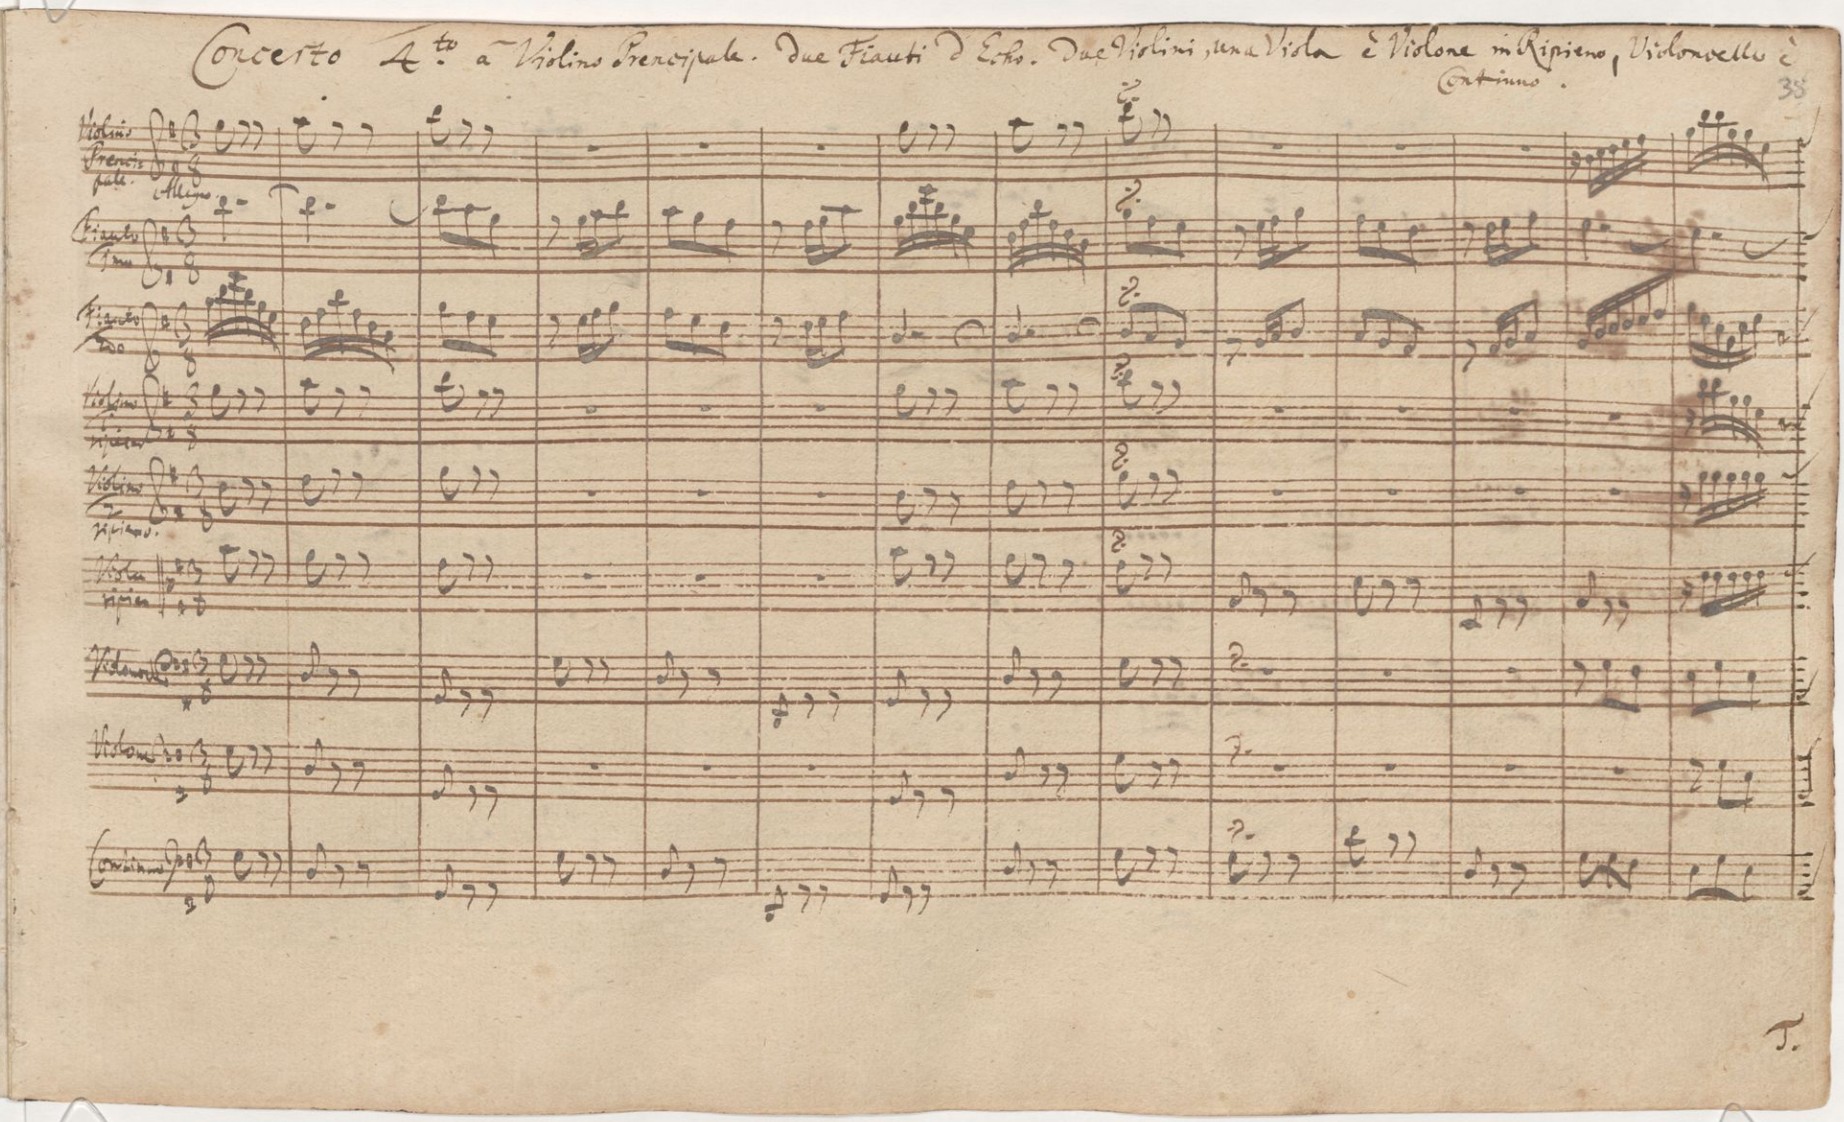 Concerto 4.to à Violino Prencipale. due Fiauti d'Echo. Due Violini, una Viola è Violone in Ripieno, Violoncello è
Continuo.
38
Violino
Prenci-
pale.
Allegro
Fiauto
1mo
Fiauto
2do
Violino
1
ripieno
Violino
2
ripieno.
Viola
ripien
Violoncello
Violone
Continuo
p.
p.
p.
p.
p.
p.
p.
p.
p.